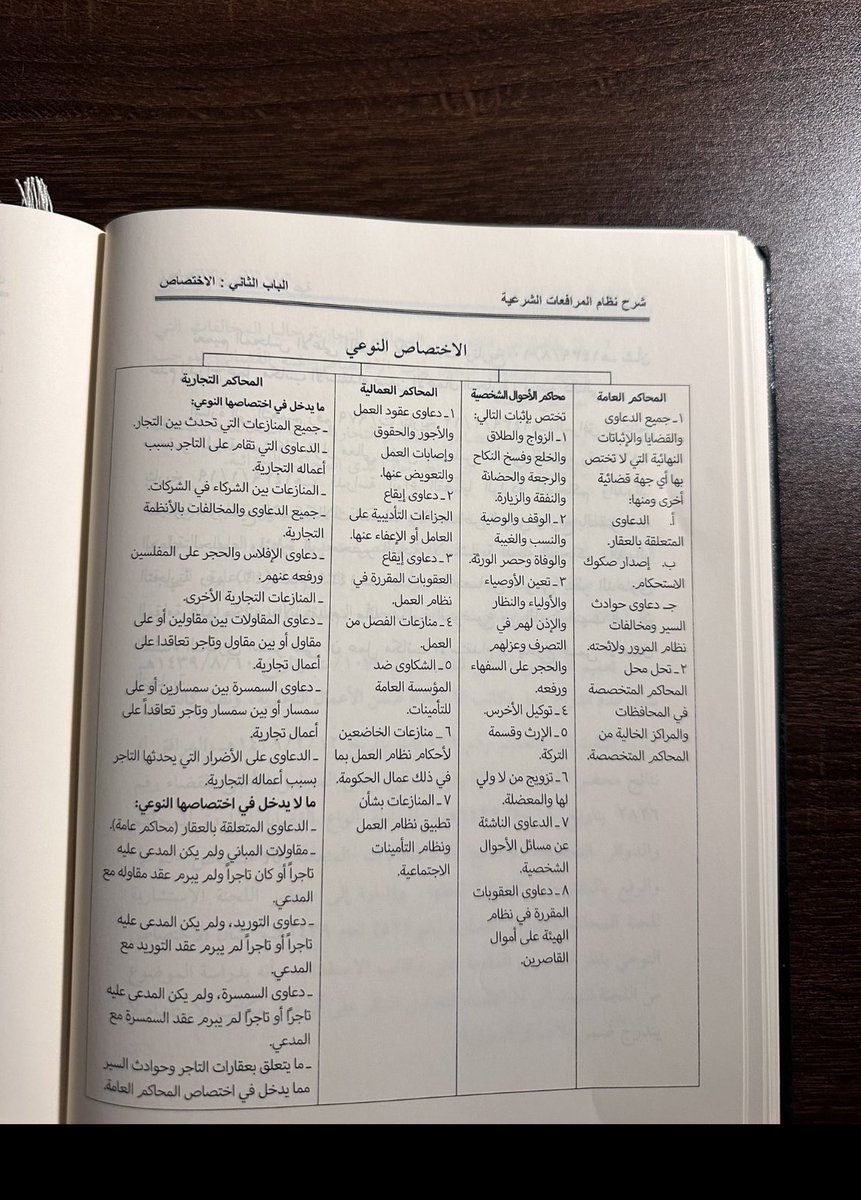 شرح نظام المرافعات الشرعية
الباب الثاني : الاختصاص
الاختصاص النوعي
المحاكم العامة
١ـ جميع الدعاوى
والقضايا والإثباتات
النهائية التي لا تختص
بها أي جهة قضائية
أخرى ومنها:
أ. الدعاوى
المتعلقة بالعقار.
ب. إصدار صكوك
الاستحكام.
جـ دعاوى حوادث
السير ومخالفات
نظام المرور ولائحته.
٢ـ تحل محل
المحاكم المتخصصة
في المحافظات
والمراكز الخالية من
المحاكم المتخصصة.
محاكم الأحوال الشخصية
تختص بإثبات التالي:
١ـ الزواج والطلاق
والخلع وفسخ النكاح
والرجعة والحضانة
والنفقة والزيارة.
٢ـ الوقف والوصية
والنسب والغيبة
والوفاة وحصر الورثة.
٣ـ تعين الأوصياء
والأولياء والنظار
والإذن لهم في
التصرف وعزلهم
والحجر على السفهاء
ورفعه.
٤ـ توكيل الأخرس.
٥ـ الإرث وقسمة
التركة.
٦ـ تزويج من لا ولي
لها والمعضلة.
٧ـ الدعاوى الناشئة
عن مسائل الأحوال
الشخصية.
٨ـ دعاوى العقوبات
المقررة في نظام
الهيئة على أموال
القاصرين.
المحاكم العمالية
١ـ دعاوى عقود العمل
والأجور والحقوق
وإصابات العمل
والتعويض عنها.
٢ـ دعاوى إيقاع
الجزاءات التأديبية على
العامل أو الإعفاء عنها.
٣ـ دعاوى إيقاع
العقوبات المقررة في
نظام العمل.
٤ـ منازعات الفصل من
العمل.
٥ـ الشكاوى ضد
المؤسسة العامة
للتأمينات.
٦ـ منازعات الخاضعين
لأحكام نظام العمل بما
في ذلك عمال الحكومة.
٧ـ المنازعات بشأن
تطبيق نظام العمل
ونظام التأمينات
الاجتماعية.
المحاكم التجارية
ما يدخل في اختصاصها النوعي:
ـ جميع المنازعات التي تحدث بين التجار.
ـ الدعاوى التي تقام على التاجر بسبب
أعماله التجارية.
ـ المنازعات بين الشركاء في الشركات.
ـ جميع الدعاوى والمخالفات بالأنظمة
التجارية.
ـ دعاوى الإفلاس والحجر على المفلسين
ورفعه عنهم.
ـ المنازعات التجارية الأخرى.
ـ دعاوى المقاولات بين مقاولين أو على
مقاول أو بين مقاول وتاجر تعاقدا على
أعمال تجارية.
ـ دعاوى السمسرة بين سمسارين أو على
سمسار أو بين سمسار وتاجر تعاقداً على
أعمال تجارية.
ـ الدعاوى على الأضرار التي يحدثها التاجر
بسبب أعماله التجارية.
ما لا يدخل في اختصاصها النوعي:
ـ الدعاوى المتعلقة بالعقار (محاكم عامة).
ـ مقاولات المباني ولم يكن المدعى عليه
تاجراً أو كان تاجراً ولم يبرم عقد مقاوله مع
المدعي.
ـ دعاوى التوريد، ولم يكن المدعى عليه
تاجراً أو تاجراً لم يبرم عقد التوريد مع
المدعي.
ـ دعاوى السمسرة، ولم يكن المدعى عليه
تاجراً أو تاجراً لم يبرم عقد السمسرة مع
المدعي.
ـ ما يتعلق بعقارات التاجر وحوادث السير
مما يدخل في اختصاص المحاكم العامة.